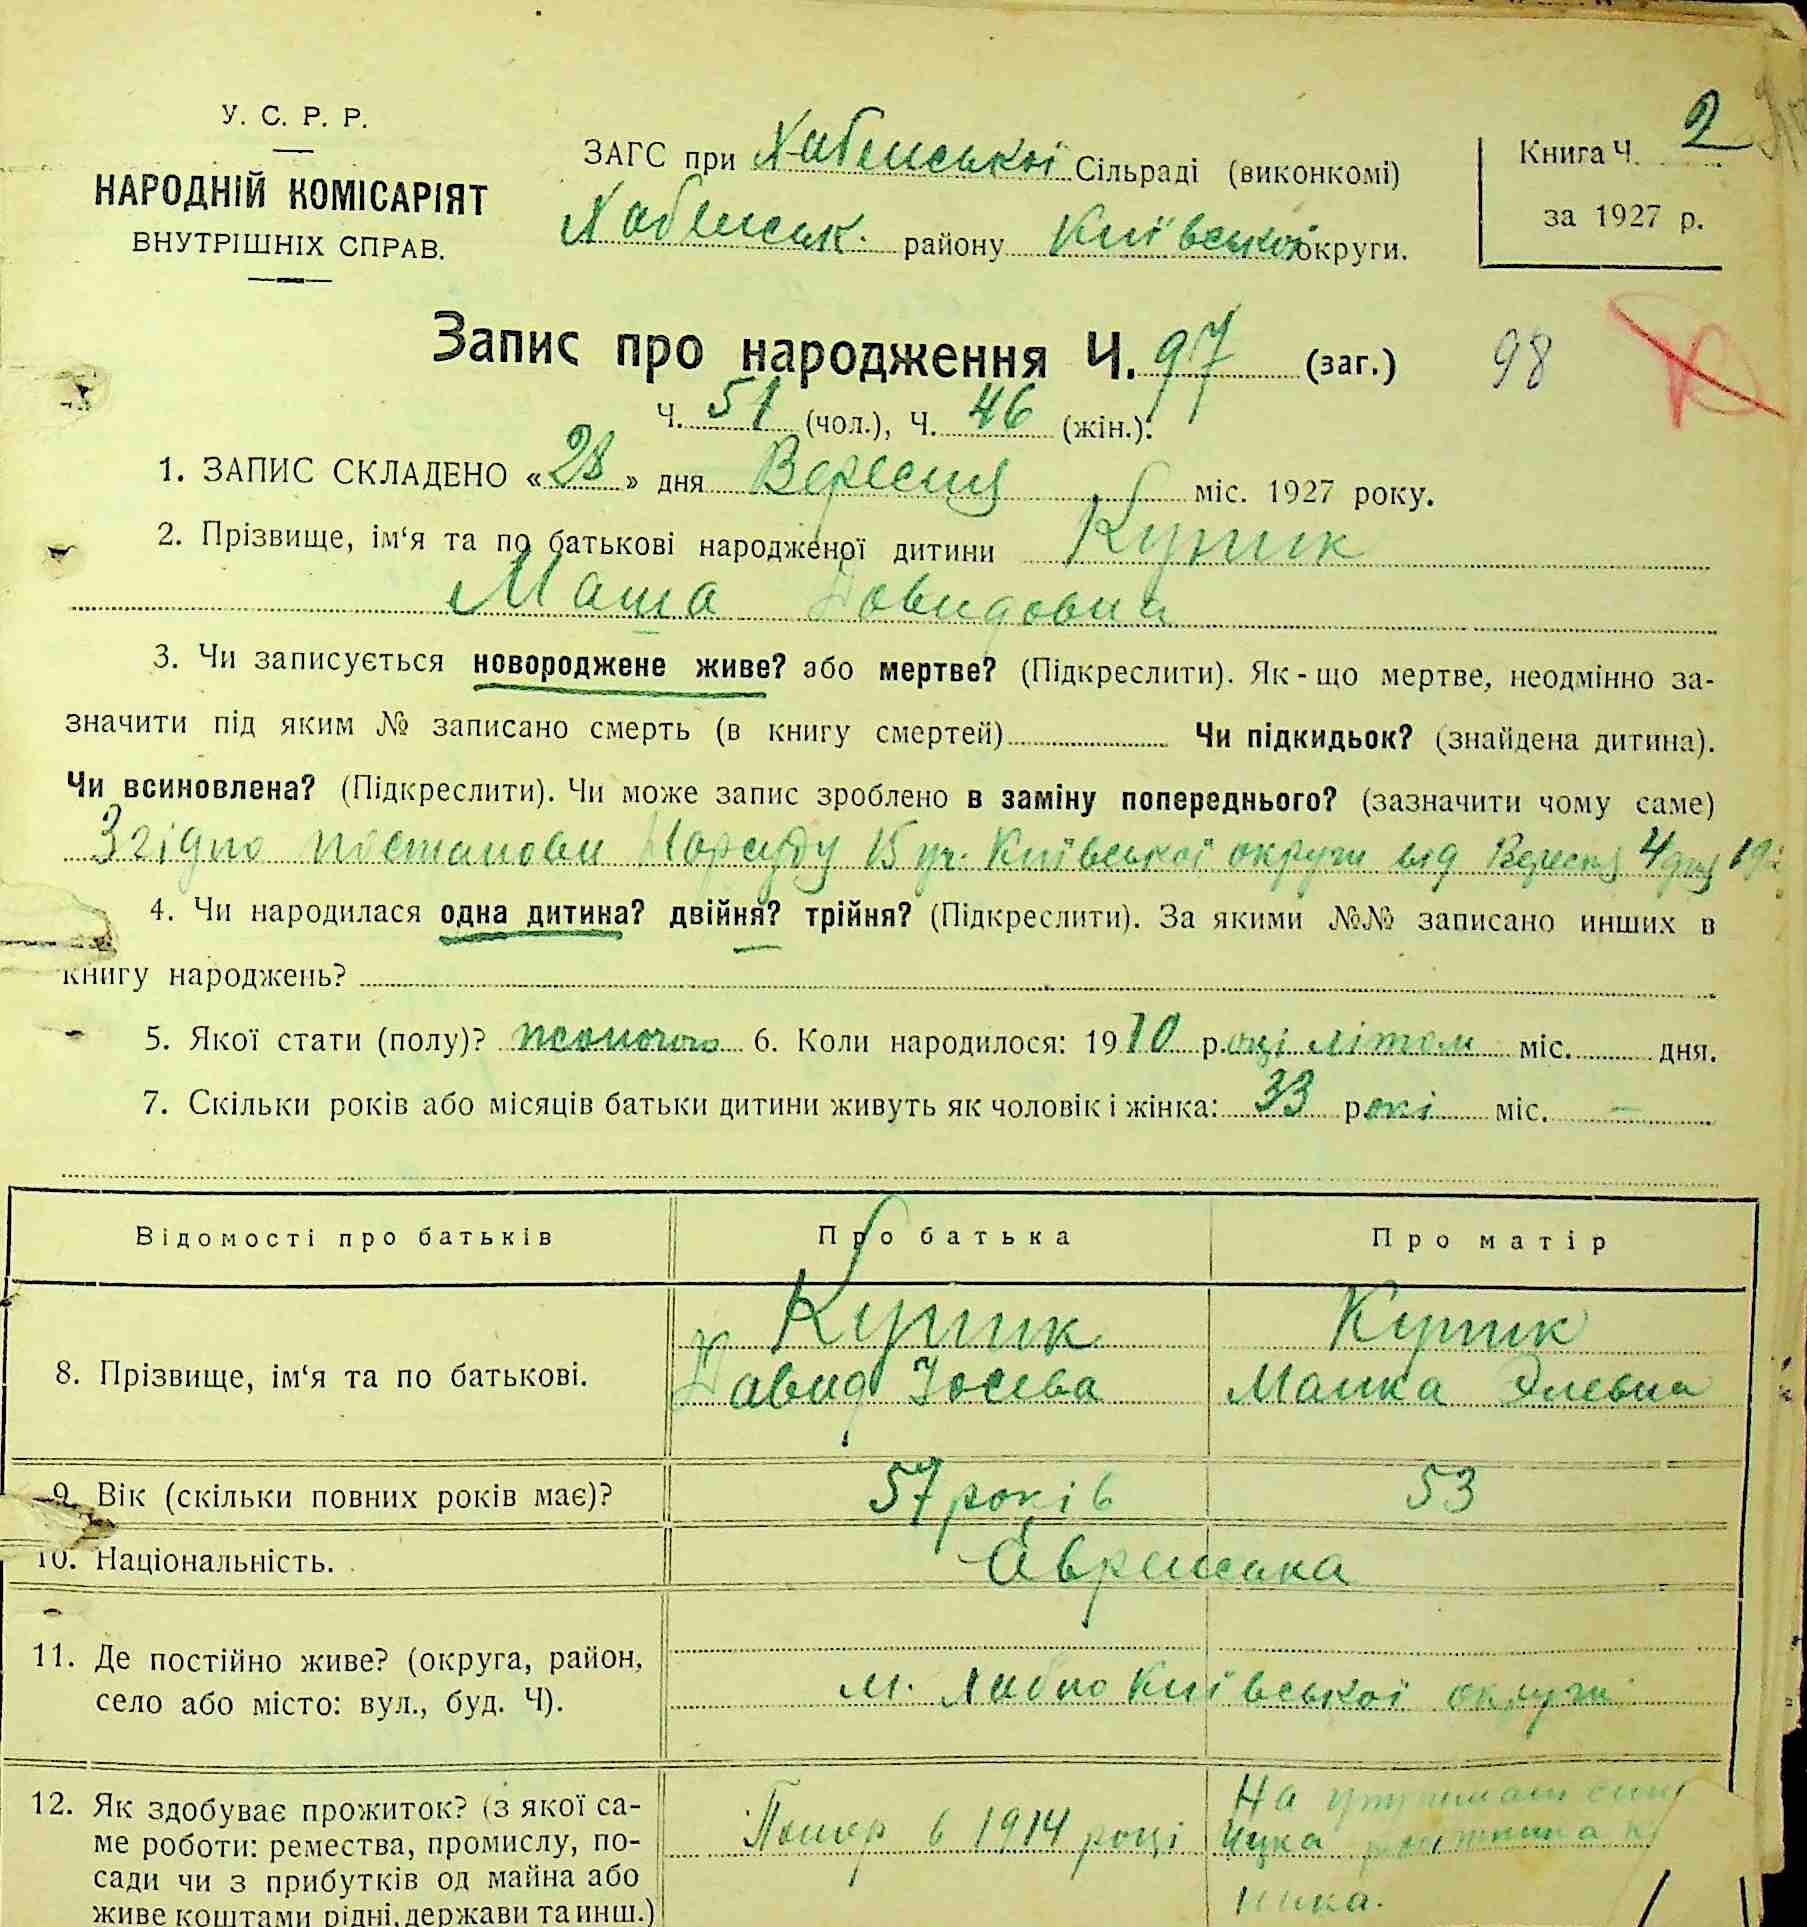 У. С. Р. Р.
НАРОДНІЙ КОМІСАРІЯТ
ВНУТРІШНІХ СПРАВ.
ЗАГС при Хабенської Сільраді (виконкомі)
Хабенськ. району Київської округи.
Книга Ч. 2
за 1927 р.
Запис про народження Ч. 97 (заг.) 98
Ч. 51 (чол.), Ч. 46 (жін.).
1. ЗАПИС СКЛАДЕНО «28» дня Вересня міс. 1927 року.
2. Прізвище, ім‘я та по батькові народженої дитини Купик
Маша Давидовна
3. Чи записується новороджене живе? або мертве? (Підкреслити). Як-що мертве, неодмінно за-
значити під яким № записано смерть (в книгу смертей) Чи підкидьок? (знайдена дитина).
Чи всиновлена? (Підкреслити). Чи може запис зроблено в заміну попереднього? (зазначити чому саме)
Згідно постанови Нарсуду 15 уч. Київської округи від Вересня 4 дня 19
4. Чи народилася одна дитина? двійня? трійня? (Підкреслити). За якими №№ записано инших в
книгу народжень?
5. Якої стати (полу)? жоночого 6. Коли народилося: 1910 році літом міс. дня.
7. Скільки років або місяців батьки дитини живуть як чоловік і жінка: 33 рокі міс. –
Відомості про батьків Про батька Про матір
8. Прізвище, ім‘я та по батькові.
Купик Купик
Давид Йосева Малка Элевна
9. Вік (скільки повних років має)? 57 років 53
10. Національність. Єврейська
11. Де постійно живе? (округа, район,
село або місто: вул., буд. Ч).
м. Хабно Київської округи
12. Як здобуває прожиток? (з якої са-
ме роботи: ремества, промислу, по-
сади чи з прибутків од майна або
живе коштами рідні, держави та инш.)
Помер в 1914 році
На
ника.